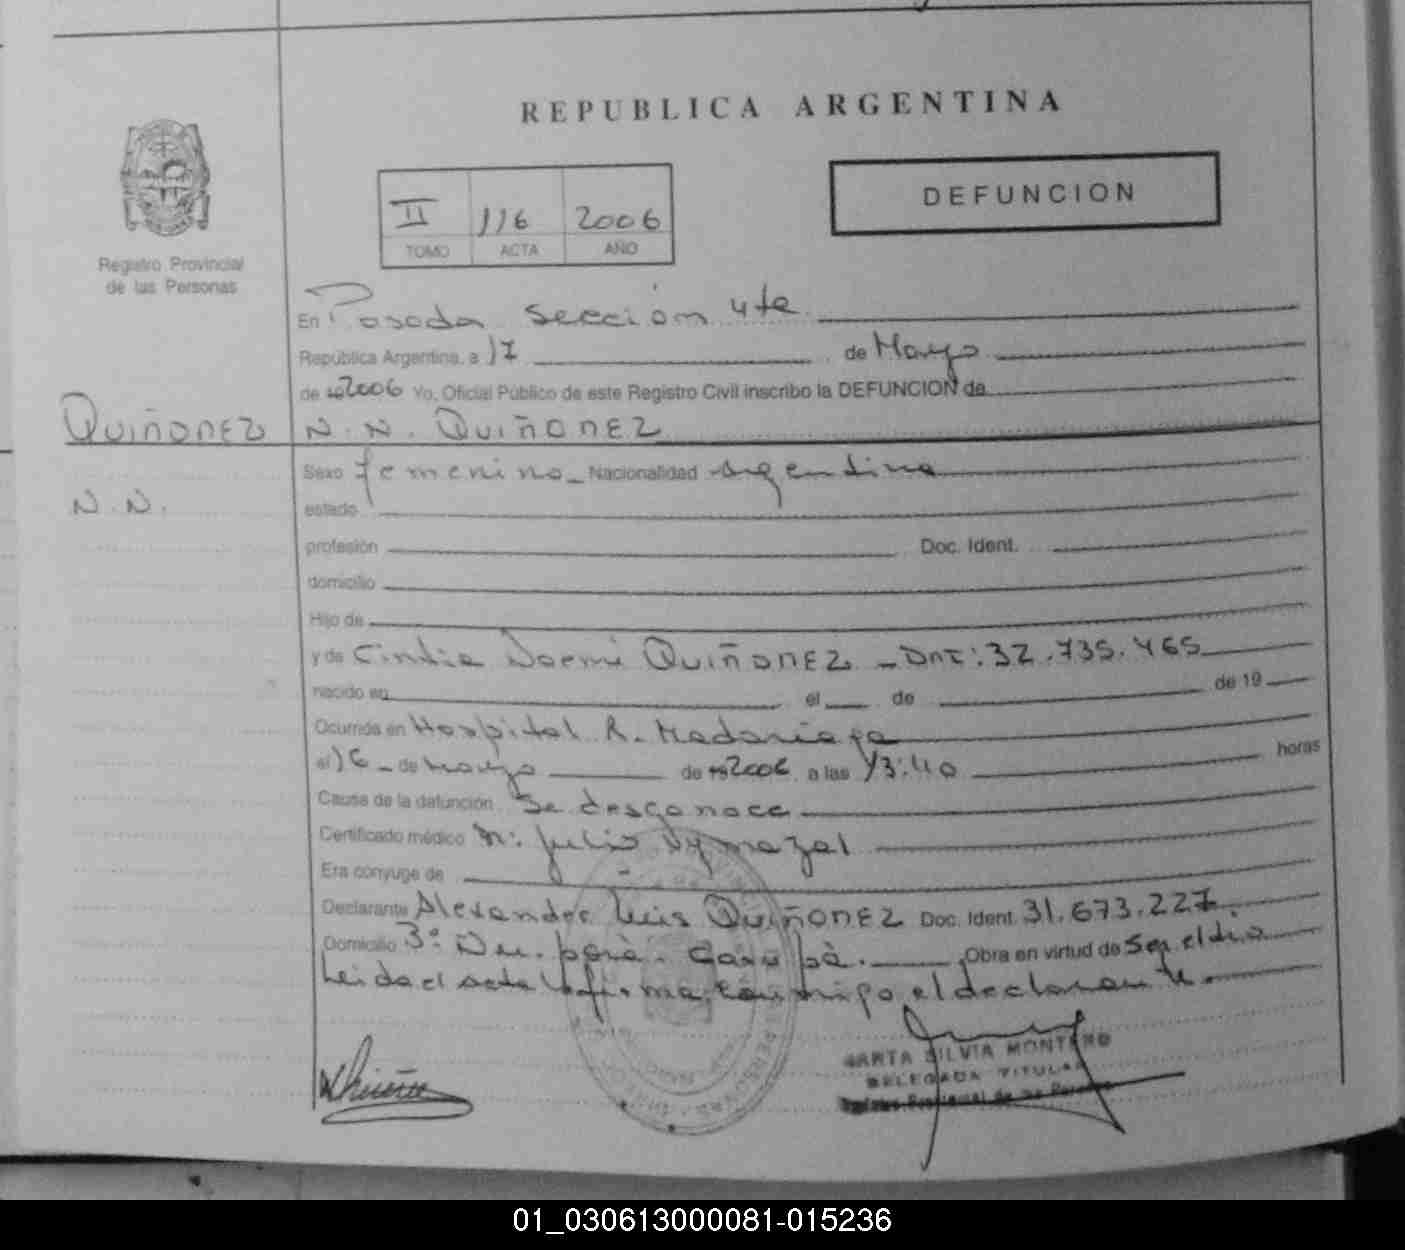 REPUBLICA ARGENTINA
II 116 2006
TOMO ACTA AÑO
DEFUNCION
Registro Provincial
de las Personas
En Posada Sección 4ta
República Argentina, a 17 de Mayo
de 19 2006 Yo, Oficial Público de este Registro Civil inscribo la DEFUNCION de
QUIÑONEZ N.N. QUIÑONEZ
Sexo femenino Nacionalidad Argentina
N.N.
estado
profesión Doc. Ident.
domicilio
Hijo de
y de Cintia Noemí QUIÑONEZ - DNI: 32.735.465
nacido en el de de 19
Ocurrida en Hospital R. Madariaga
el 16 - de Mayo de 19 2006 a las 13:40 horas
Cause de la defunción Se desconoce
Certificado médico Julio
Era conyuge de
Declarante Alexander Luis QUIÑONEZ Doc. Ident. 31.673.227
Domicilio 3° Garupá. Obra en virtud de Ser el tío
Leida el acta la firma conmigo, el declarante.
MARTA SILVIA MONTERO
DELEGADA TITULAR
01_030613000081-015236